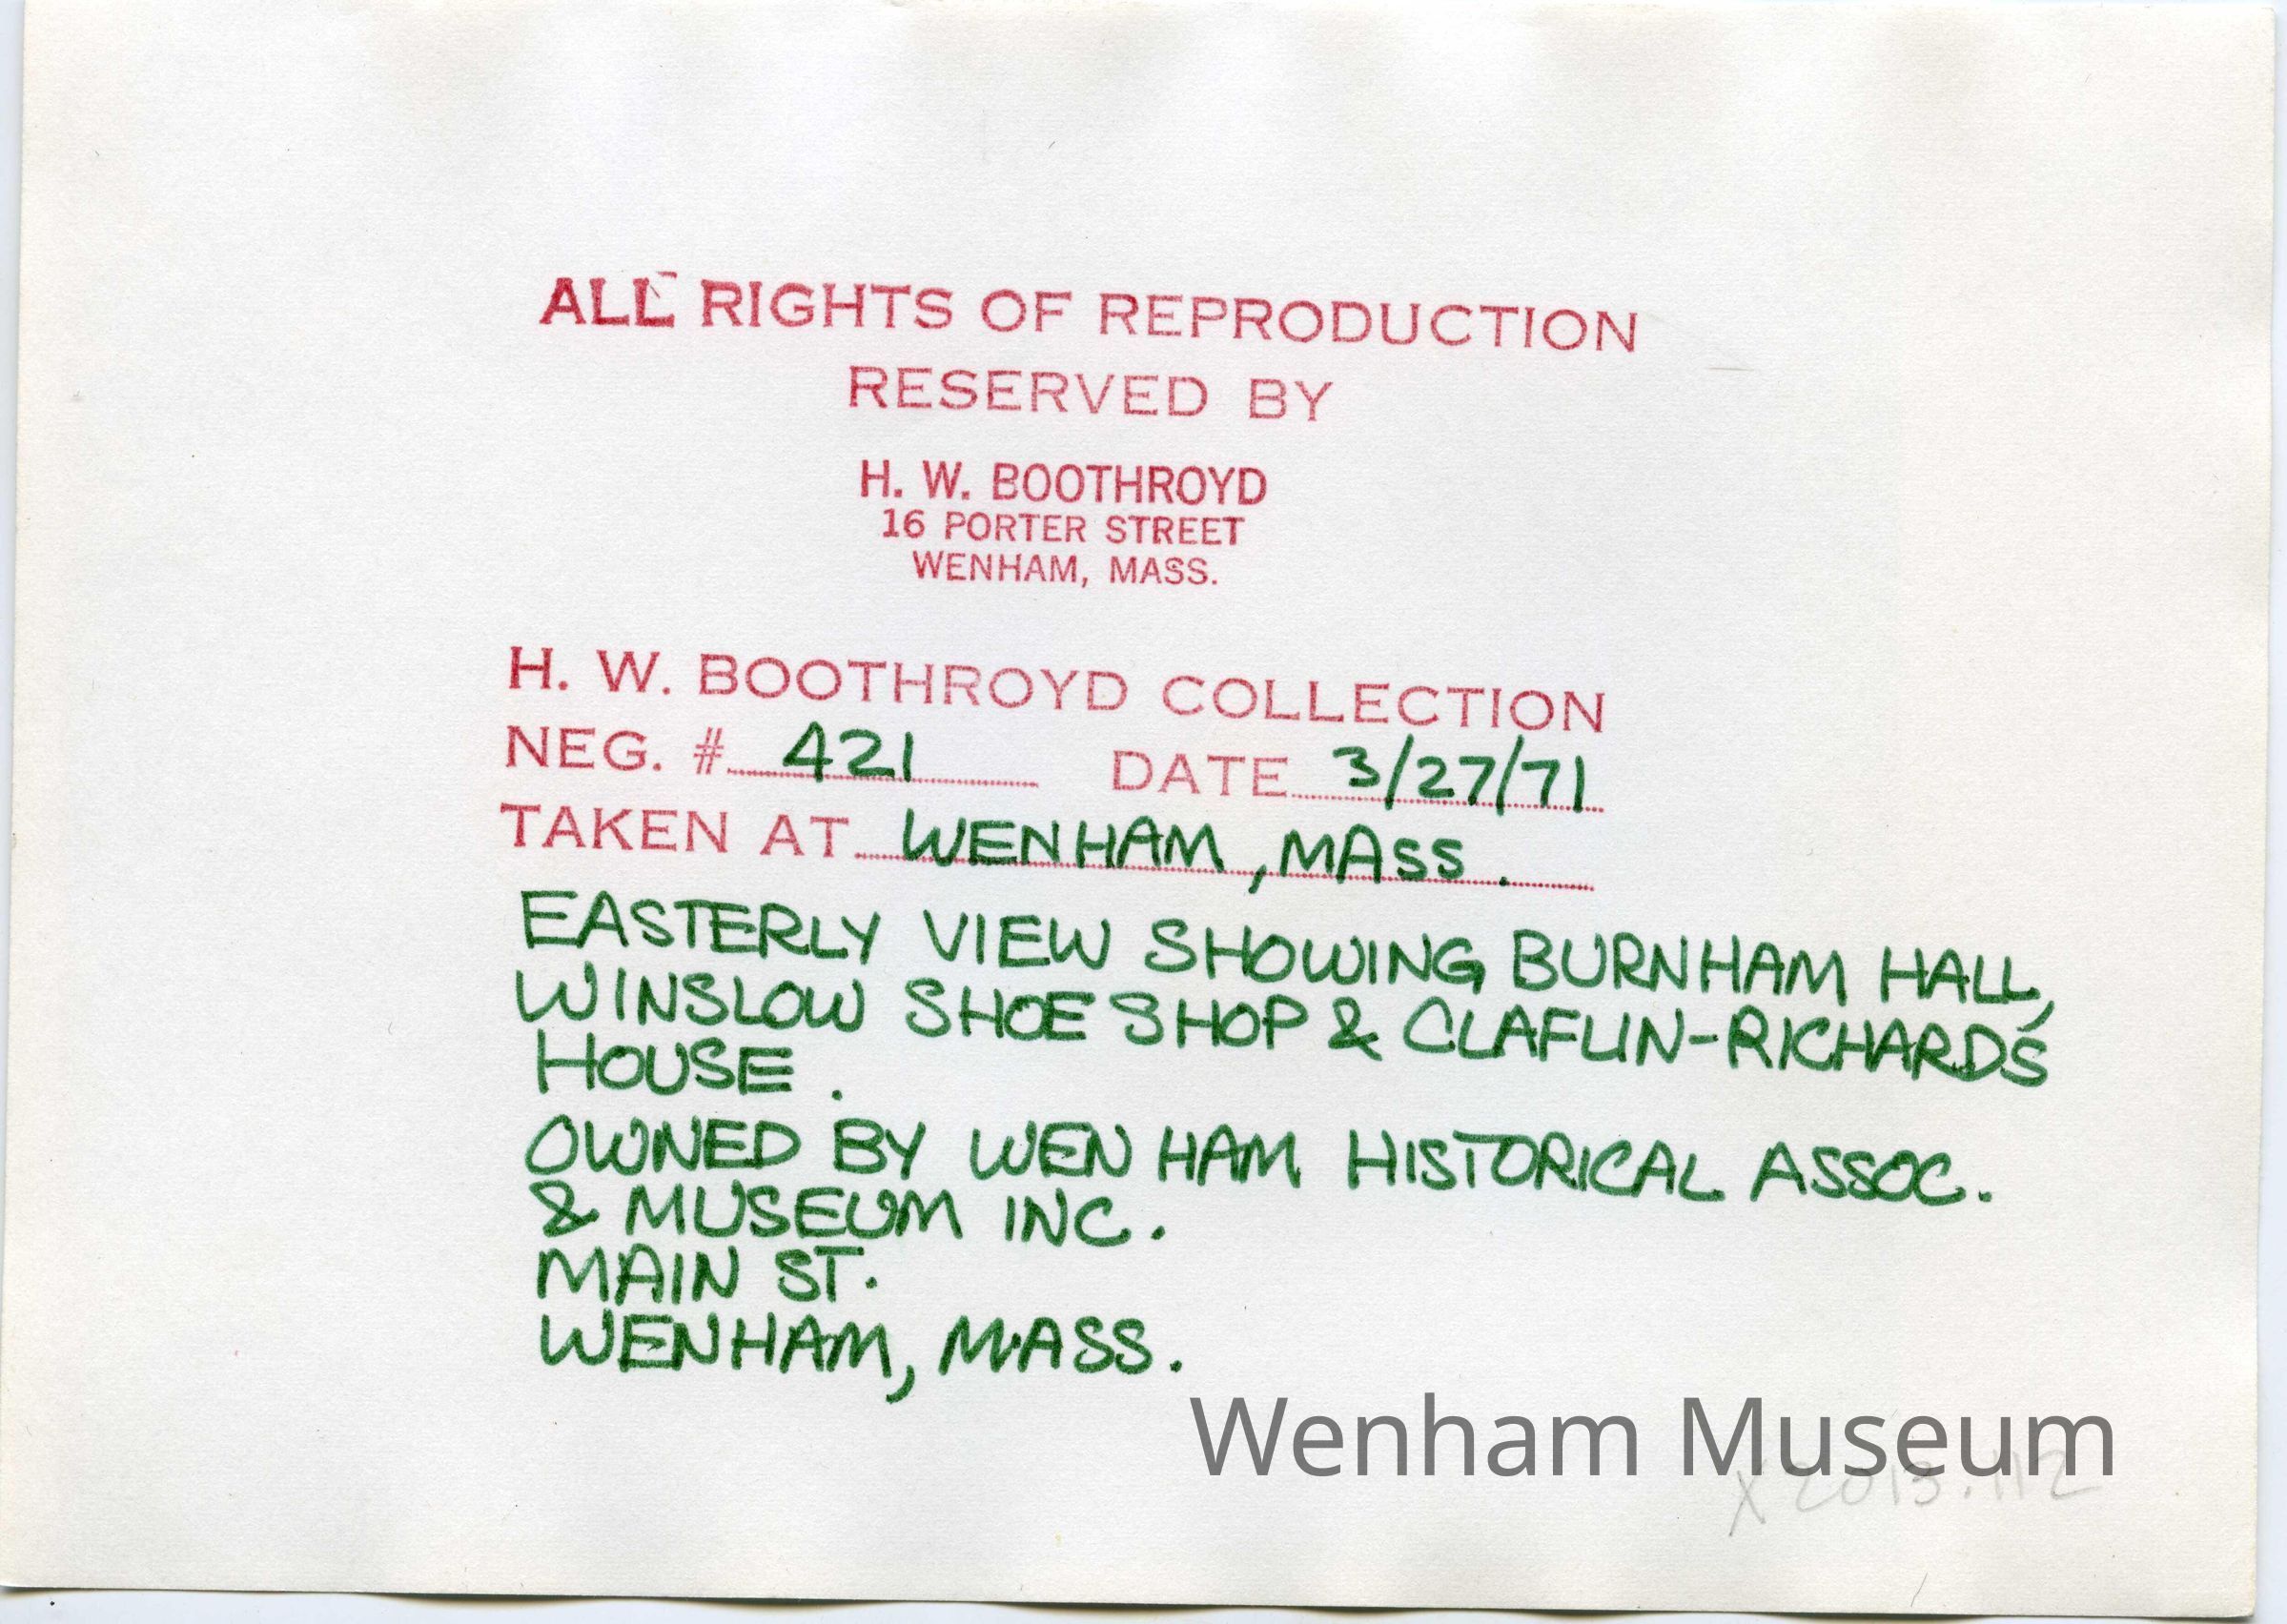 ALL RIGHTS OF REPRODUCTION
RESERVED BY
H. W. BOOTHROYD
16 PORTER STREET
WENHAM, MASS.
H. W. BOOTHROYD COLLECTION
NEG. # 421 DATE 3/27/71
TAKEN AT WENHAM, MASS.
EASTERLY VIEW SHOWING BURNHAM HALL,
WINSLOW SHOE SHOP & CLAFLIN-RICHARDS
HOUSE.
OWNED BY WENHAM HISTORICAL ASSOC.
& MUSEUM INC.
MAIN ST.
WENHAM, MASS.
Wenham Museum
X2013.112